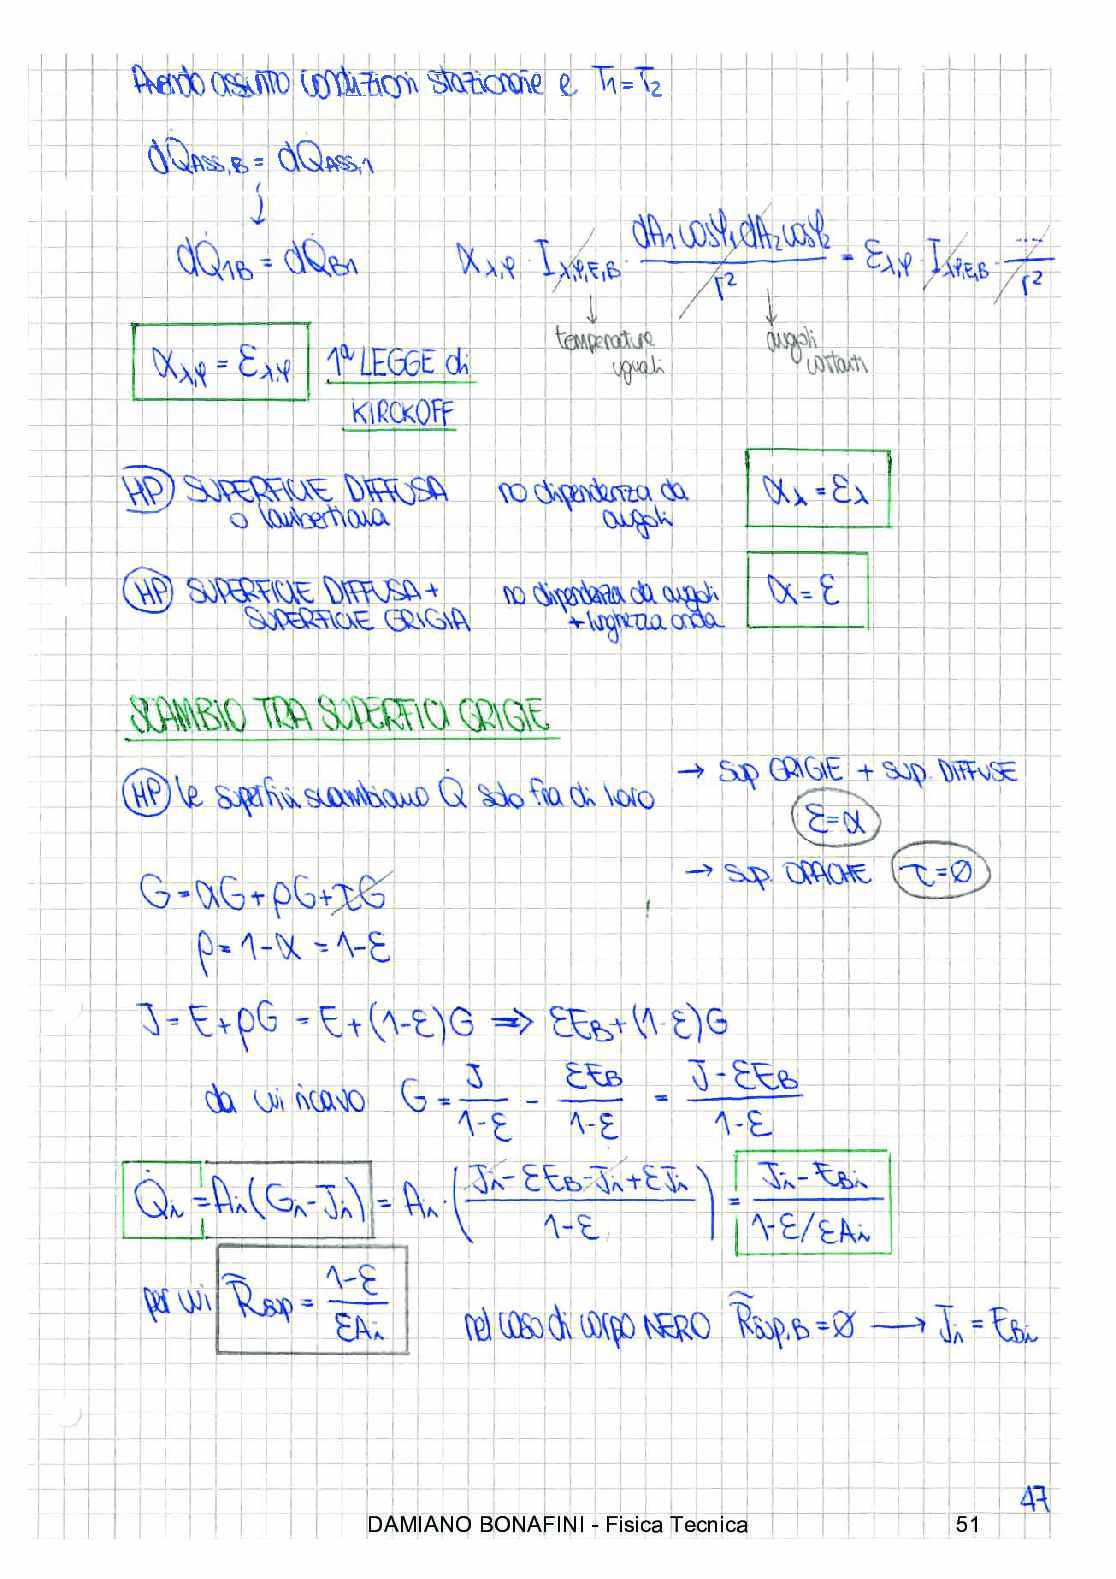 Avendo assunto condizioni stazionarie e T₁=T₂
dQ̇ASS,B = dQ̇ASS,1
↓
dQ̇1B = dQ̇B1 αλ,φ · Iλ,φ,E,B · dA₁cosφ₁dA₂cosφ₂/r² = ελ,φ · Iλ,φ,E,B · .../r²
temperature uguali
angoli costanti
αλ,φ = ελ,φ 1ª LEGGE di
KIRCKOFF
HP SUPERFICIE DIFFUSA no dipendenza da αλ = ελ
o lambertiana angoli
HP SUPERFICIE DIFFUSA + no dipendenza da angoli α = ε
SUPERFICIE GRIGIA + lunghezza onda
SCAMBIO TRA SUPERFICI GRIGIE
HP le superfici scambiano Q̇ solo fra di loro → SUP GRIGIE + SUP. DIFFUSE
ε=α
→ SUP. OPACHE τ=Ø
G=αG+ρG+τG
ρ=1-α=1-ε
J=E+ρG=E+(1-ε)G ⇒ εEB+(1-ε)G
da cui ricavo G = J/1-ε - εEB/1-ε = J-εEB/1-ε
Q̇i = Ai(Gi-Ji) = Ai·(Ji-εEB-Ji+εJi/1-ε) = Ji-EBi/1-ε/εAi
per cui R̃sup = 1-ε/εAi nel caso di corpo NERO R̃sup,B=Ø → Ji=EBi
47
DAMIANO BONAFINI - Fisica Tecnica 51